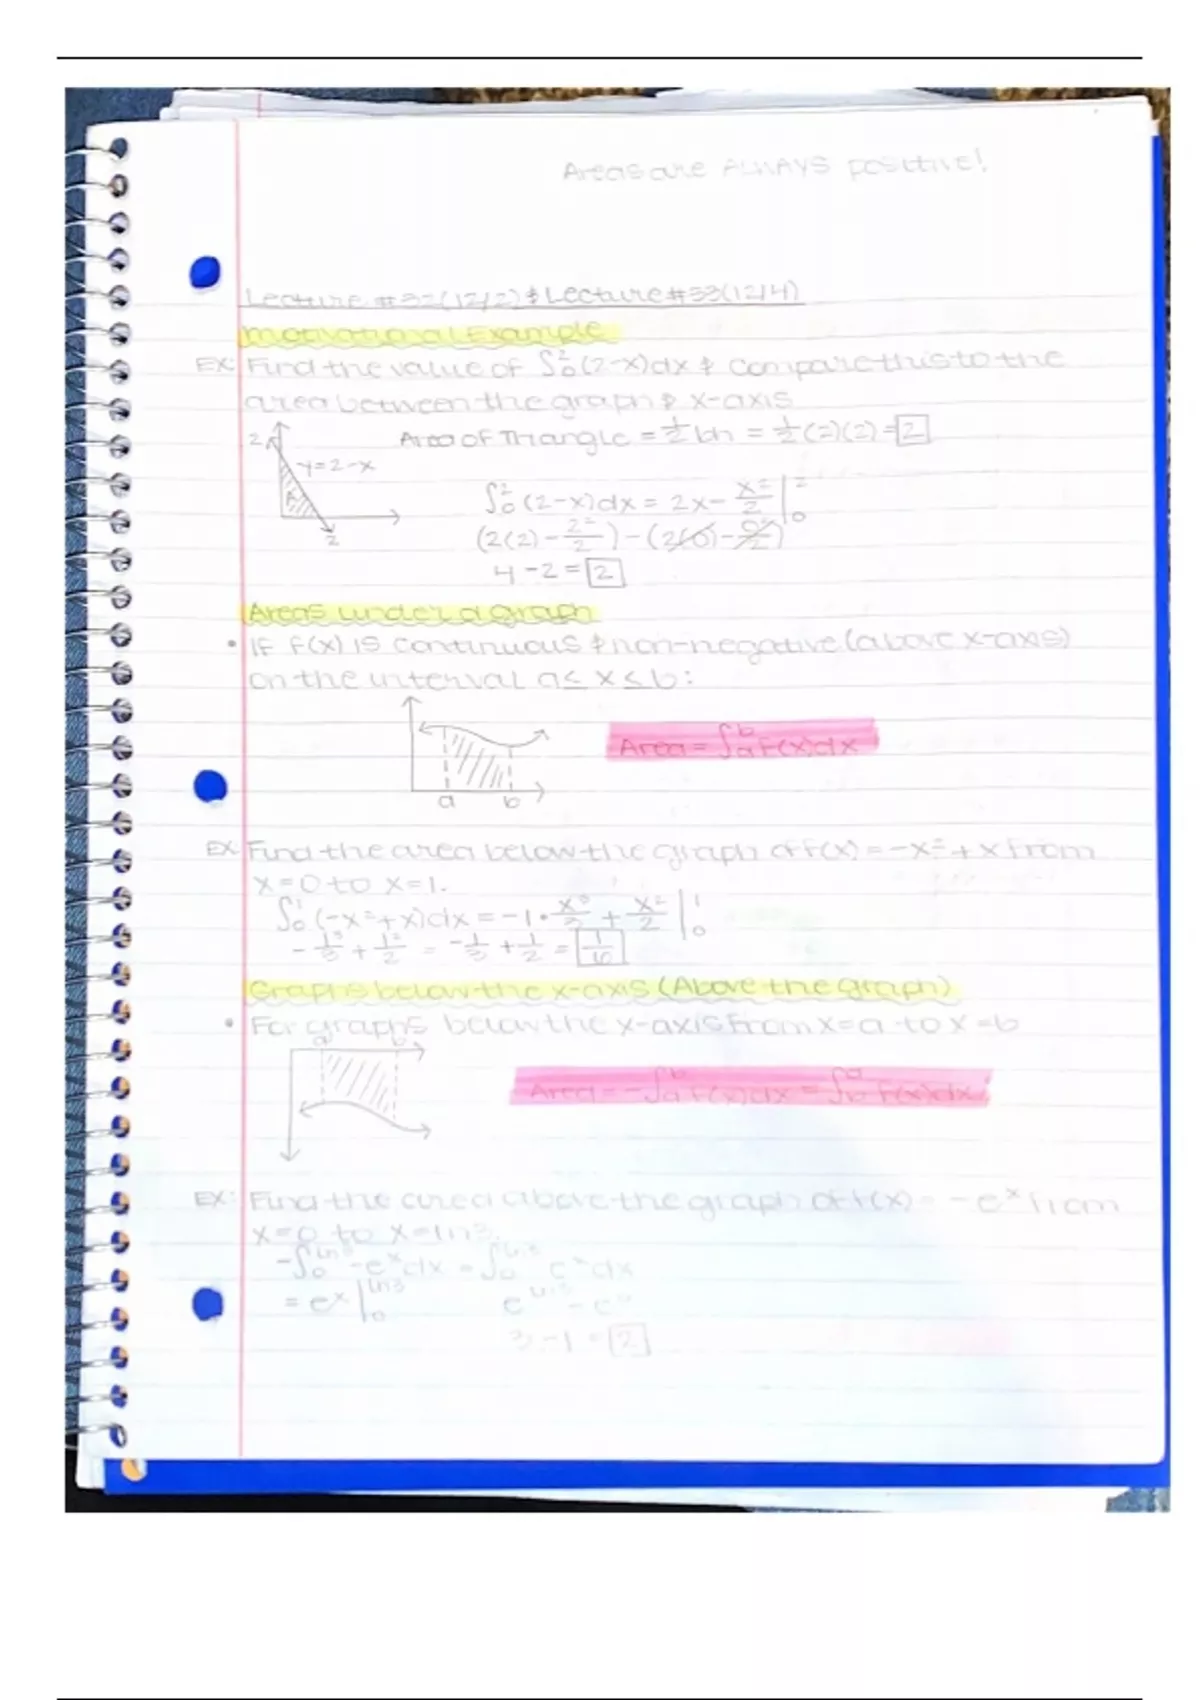 Areas are ALWAYS positive!
Lecture #32(12/2) & Lecture #33(12/4)
Motivational Example
EX: Find the value of ∫₀²(2-x)dx & compare this to the
area between the graph & x-axis
2
Area of Triangle = ½bh = ½(2)(2) = 2
y=2-x
A
2
∫₀²(2-x)dx = 2x - x²/2 |₀²
(2(2) - 2²/2) - (2(0) - 0²/2)
4 - 2 = 2
Areas under a graph
• If f(x) is continuous & non-negative (above x-axis)
on the interval a≤ x ≤ b:
Area = ∫ₐᵇ f(x)dx
a b
EX: Find the area below the graph of f(x) = -x² + x from
x=0 to x=1.
∫₀¹(-x²+x)dx = -1 • x³/3 + x²/2 |₀¹
- 1³/3 + 1²/2 = -1/3 + 1/2 = 1/6
Graphs below the x-axis (Above the graph)
• For graphs below the x-axis from x=a to x=b
a b
Area = -∫ₐᵇ f(x)dx = ∫_b^a f(x)dx
EX: Find the area above the graph of f(x) = -eˣ from
x=0 to x=ln3.
-∫₀^ln3 -eˣdx = ∫₀^ln3 eˣdx
= eˣ |₀^ln3 e^ln3 - e⁰
3 - 1 = 2